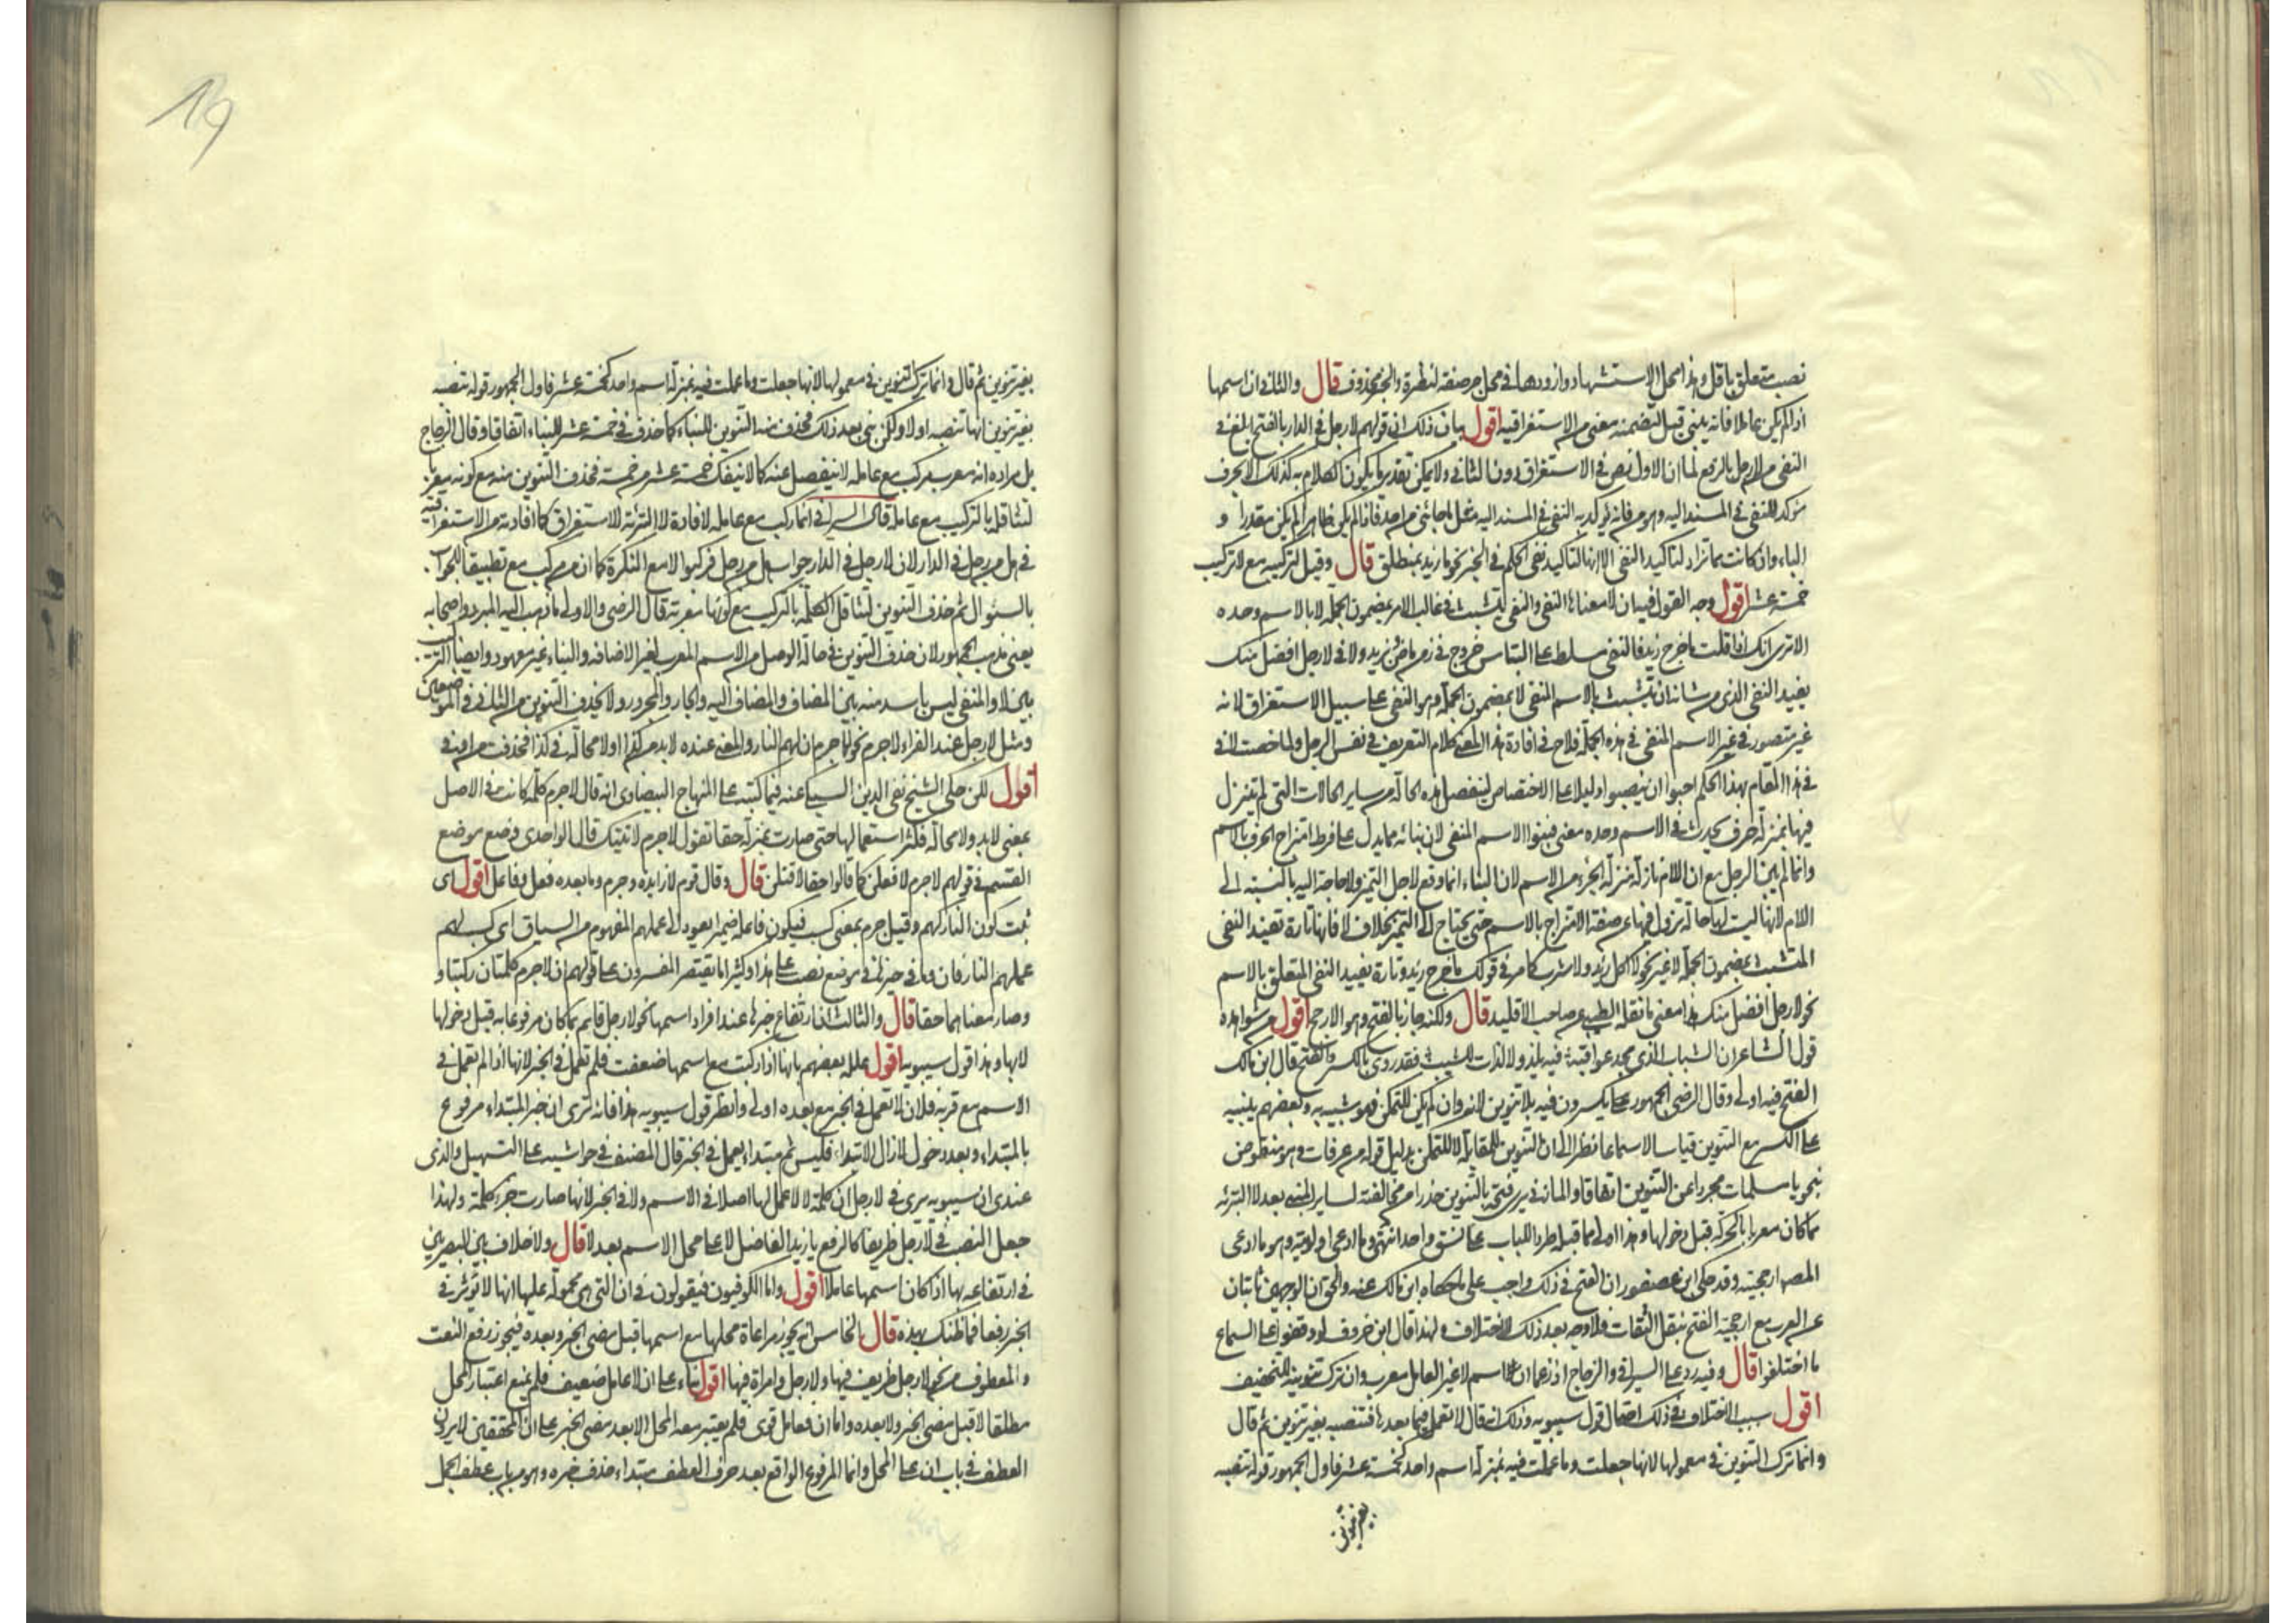 نصب متعلق باقل وهذا محل الاستشهاد وازودها في محل جر صفة لنظرة والخبر محذوف قال والثاني ان اسمها
اذا لم يكن عاملا فانه يبنى قيل لتضمنه معنى من الاستغراقية اقول بيان ذلك ان قولهم لا رجل في الدار بالفتح ابلغ في
النفي من لا رجل بالرفع لما ان الاول نص في الاستغراق دون الثاني ولا يمكن تقدير ما يكون الكلام به كذلك الا بحرف
مؤكد للنفي في المسند اليه وهو من فانه يؤكد به النفي في المسند اليه مثل ما جاءني من احد فاذا لم يكن ظاهرا لم يكن مقدرا و
الباء وان كانت مما تزاد لتاكيد النفي الا انها لتاكيد نفي الحكم في الخبر نحو ما زيد بمنطلق قال وقيل لتركيبه مع لا تركيب
خمسة عشر اقول وجه القول فيه ان لا معناها النفي والنفي يتشبث في غالب الامر بمضمون الجملة لا بالاسم وحده
الا ترى انك اذا قلت ما خرج زيد فالنفي مسلط على التباس خروج في زمن ماض بزيد ولا في لا رجل افضل منك
يفيد النفي الذي من شانه ان يتشبث بالاسم المنفي لا بمضمون الجملة وهو النفي على سبيل الاستغراق لانه
غير متصور في غير الاسم المنفي في هذه الجملة فلاح في افادة هذا المعنى كلام التعريف في نفس الرجل ولما خصت لا في
في هذا المقام بهذا الحكم احبوا ان ينصبوا دليلا على الاختصاص لينفصل هذه الحالة من ساير الحالات التي لم تنزل
فيها بمنزلة حرف يحدث في الاسم وحده معنى فبنوا الاسم المنفي لان بنائه مما يدل على فرط امتزاج الحرف بالاسم
وانما لم يبن الرجل مع ان اللام نازلة منزلة الجزء من الاسم لان البناء انما وقع لاجل التميز ولا حاجة اليه بالنسبة الى
اللام لانها ليست لها حالة تزول فيها عن صفة الامتزاج بالاسم حتى يحتاج الى التميز بخلاف لا فانها تارة تفيد النفي
المتشبث بمضمون الجملة لا غير نحو لا اكل زيد ولا شرب كما مر في قولك ما خرج زيد وتارة يفيد النفي المتعلق بالاسم
نحو لا رجل افضل منك هذا معنى ما نقله الطيبي عن صاحب الاقليد قال ولكنه جاز بالفتح وهو الارجح اقول من شواهده
قول الشاعر ان الشباب الذي مجد عواقبه فيه يلذ ولا لذات للشيب فقد روي بالكسر والفتح قال ابن مالك
الفتح فيه اولى وقال الرضي الجمهور على كسرون فيه بلا تنوين لانه وان لم يكن للتمكن فهو شبيه به وبعضهم يبنيه
على الكسر مع التنوين قياسا لا سماعا نظرا الى ان التنوين للمقابلة لا للتمكن بدليل قوله من عرفات وهو منقوض
بنحو يا مسلمات مجردا عن التنوين اتفاقا والمازني يرى فتحه بالتنوين حذرا من مخالفته لساير المبني بعد لا التبرئه
مما كان معربا بالحركة قبل دخولها وهذا اولى مما قبله طردا للباب على نسق واحد انتهى وما ادعى اولويته هو ما ادعى
المصر ارجحيته وقد حكى ابن عصفور ان الفتح في ذلك واجب على ما حكاه ابن مالك عنه والحق ان الوجهين ثابتان
عن العرب مع ارجحية الفتح بنقل الثقات فلا وجه بعد ذلك للاختلاف ولهذا قال ابن خروف لو وقفوا على السماع
ما اختلفوا قال وفيه رد على السيرافي والزجاج اذ زعما ان اسم لا غير العامل معرب وان ترك تنوينه للتخفيف
اقول سبب الاختلاف في ذلك احتمال قول سيبويه وذلك انه قال لا تعمل فيما بعدها فتنصبه بغير تنوين ثم قال
وانما ترك التنوين في معمولها لانها جعلت وما عملت فيه بمنزلة اسم واحد كخمسة عشر فاول الجمهور قوله تنصبه
بغير تنوين
19
بغير تنوين ثم قال وانما ترك التنوين في معمولها لانها جعلت وما عملت فيه بمنزلة اسم واحد كخمسة عشر فاول الجمهور قوله تنصبه
بغير تنوين انها تنصبه اولا ولكن بني بعد ذلك فحذف منه التنوين للبناء كما حذف في خمسة عشر للبناء اتفاقا وقال الزجاج
بل مراده انه معرب مركب مع عامله لا ينفصل عنه كما لا ينفك خمسة عشر من خمسة فحذف التنوين منه مع كونه معربا
لتثاقله بالتركيب مع عامله قال السيرافي انما ركب مع عامله لافادة لا التبرئة للاستغراق كما افادته من الاستغراقية
في هل من رجل في الدار لان لا رجل في الدار جواب هل من رجل فركبوا لا مع النكرة كما ان من مركب مع تطبيقا للجواب
بالسؤال ثم حذف التنوين لتثاقل الكلمة بالتركيب مع كونها معربة قال الرضي والاولى ما ذهب اليه المبرد واصحابه
يعني مذهب الجمهور لان حذف التنوين في حالة الوصل من الاسم المعرب لغير الاضافه والبناء غير معهود وايضا التركيب
بين لا والمنفي ليس باشد منه بين المضاف والمضاف اليه والجار والمجرور ولا يحذف التنوين من الثاني في الموضعين
ومثل لا رجل عند الفراء لا جرم نحو لا جرم ان لهم النار والمعنى عنده لا بد من كذا او لا محالة في كذا فحذفت من او في
اقول لكن حكى الشيخ تقي الدين السبكي عنه فيما كتبه على المنهاج البيضاوي انه قال لا جرم كلمة كانت في الاصل
بمعنى لا بد ولا محالة فكثر استعمالها حتى صارت بمنزلة حقا تقول لا جرم لاتينك قال الواحدي وضع موضع
القسم في قولهم لا جرم لافعلن كما قالوا حقا لاقتلن قال وقال قوم لا زايده وجرم وما بعده فعل وفاعل اقول اي
ثبت كون النار لهم وقيل جرم بمعنى كسب فيكون فاعله ضميرا يعود الى عملهم المفهوم من السياق اي كسب لهم
عملهم النار فان وما في حيزها في موضع نصب على هذا وكثيرا ما يقتصر المفسرون على قولهم ان لا جرم كلمتان ركبتا و
وصار معناهما حقا قال والثالث ان ارتفاع خبرها عند افراد اسمها نحو لا رجل قائم بما كان مرفوعا به قبل دخولها
لا بها وهذا قول سيبويه اقول علله بعضهم بانها اذا ركبت مع اسمها ضعفت فلم تعمل في الخبر لانها اذا لم تعمل في
الاسم مع قربه فلان لا تعمل في الخبر مع بعده اولى وانظر قول سيبويه هذا فانه لترى ان خبر المبتداء مرفوع
بالمبتداء وبعد دخول لا زال الابتداء فليس ثم مبتداء يعمل في الخبر قال المصنف في حواشيه على التسهيل والذي
عندي ان سيبويه يرى في لا رجل ان كلمة لا لا عمل لها اصلا في الاسم ولا في الخبر لانها صارت جزء كلمة ولهذا
جعل النصب في لا رجل ظريفا كالرفع يا زيد الفاضل لا على محل الاسم بعد لا قال ولا خلاف بين البصريين
في ارتفاعه بها اذا كان اسمها عاملا اقول واما الكوفيون فيقولون في ان التي هي محمولة عليها انها لا تؤثر في
الخبر رفعا فما ظنك بهذه قال الخامس انه يجوز مراعاة محلها مع اسمها قبل مضي الخبر وبعده فيجوز رفع النعت
والمعطوف نحو لا رجل ظريف فيها ولا رجل وامرأة فيها اقول بناء على ان لا عامل ضعيف فلم يمنع اعتبار المحل
مطلقا لا قبل مضي الخبر ولا بعده واما ان فعامل قوي فلم يعتبر معه المحل الا بعد مضي الخبر على ان المحققين لا يرون
العطف في باب ان على المحل وانما المرفوع الواقع بعد حرف العطف مبتداء حذف خبره وهو من باب عطف الجمل